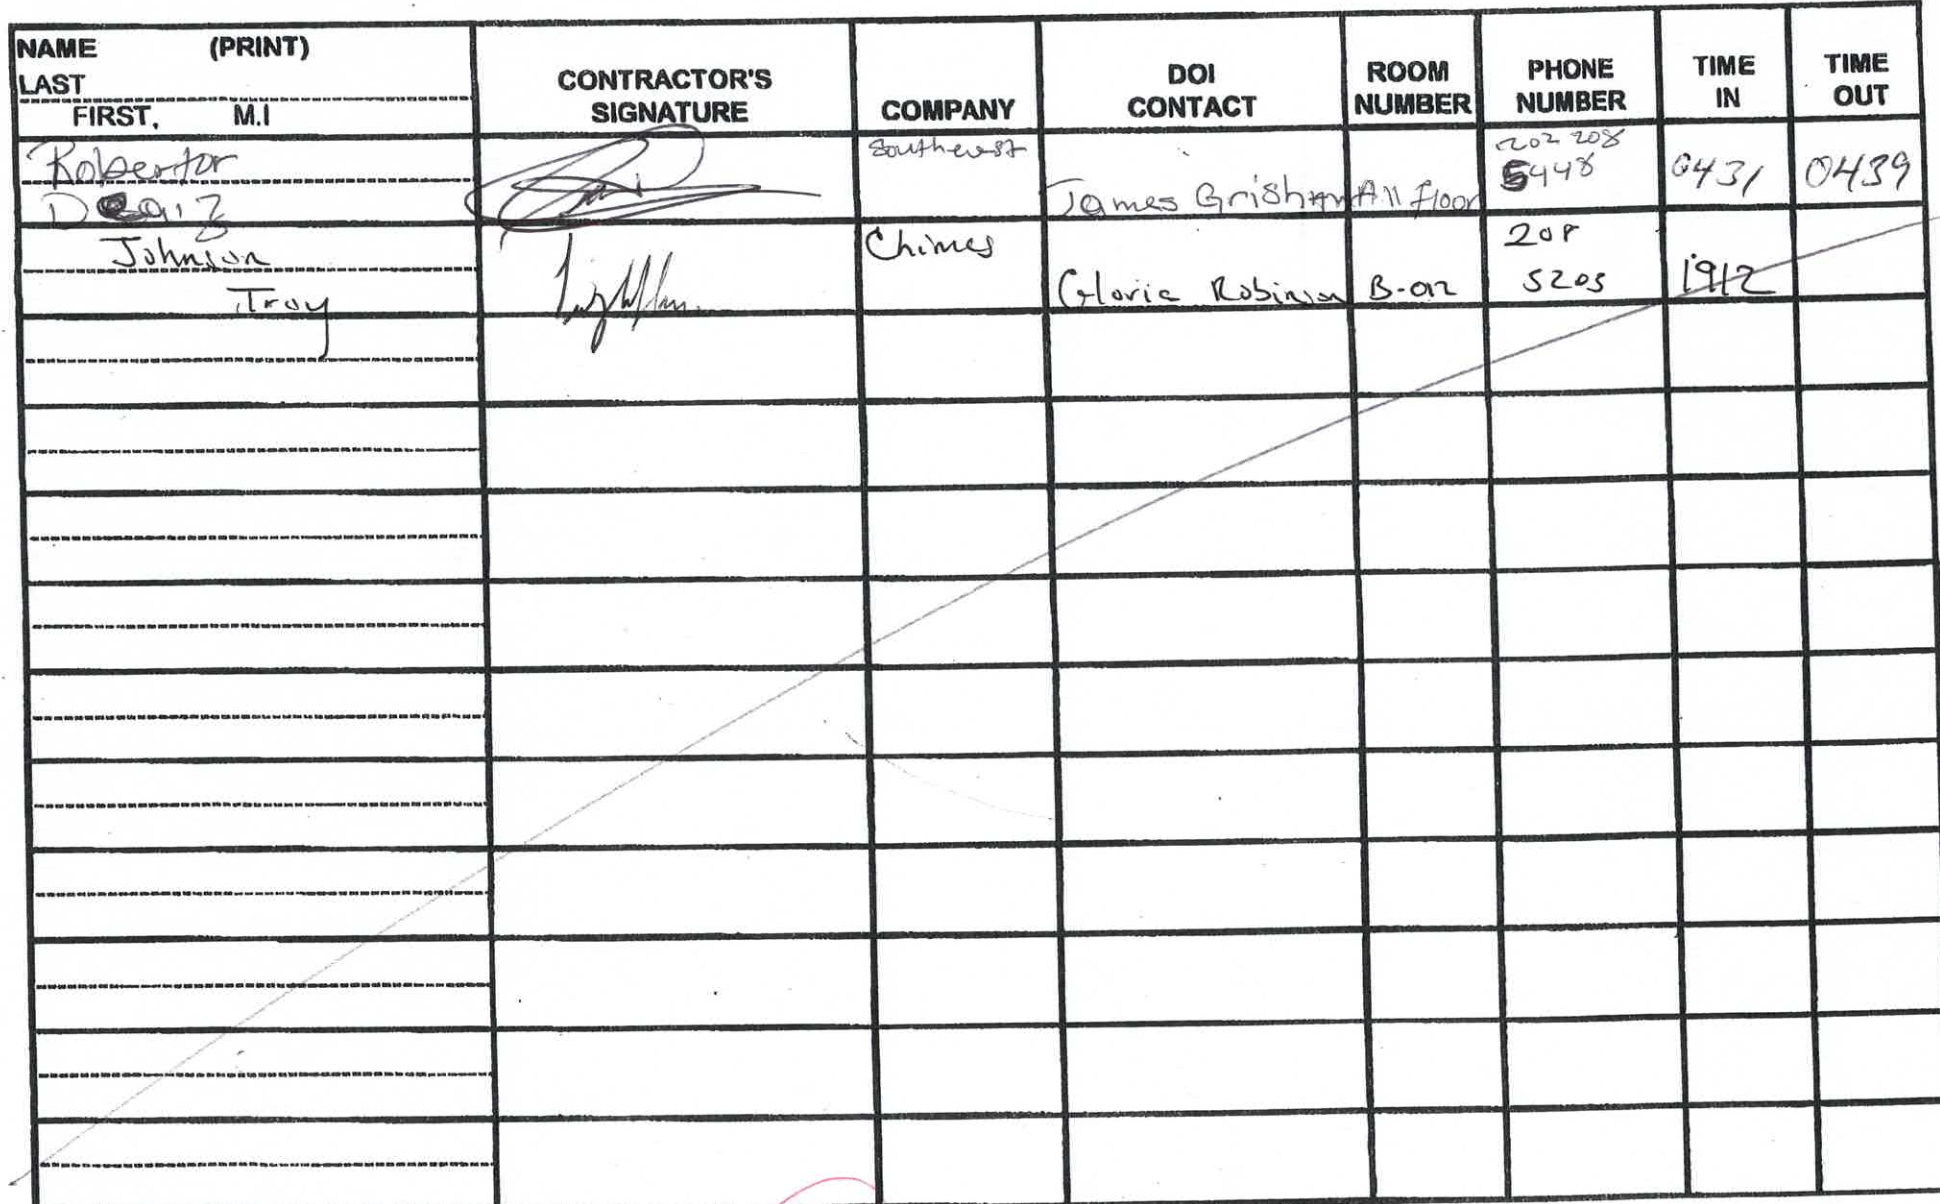 NAME (PRINT)
LAST
FIRST, M.I
CONTRACTOR'S
SIGNATURE
COMPANY
DOI
CONTACT
ROOM
NUMBER
PHONE
NUMBER
TIME
IN
TIME
OUT
Robertor
Southwest
James Grisham
All Floor
202 208
5448
0431
0439
Johnson
Troy
Chimes
Gloria Robinson
B-012
208
5205
1912